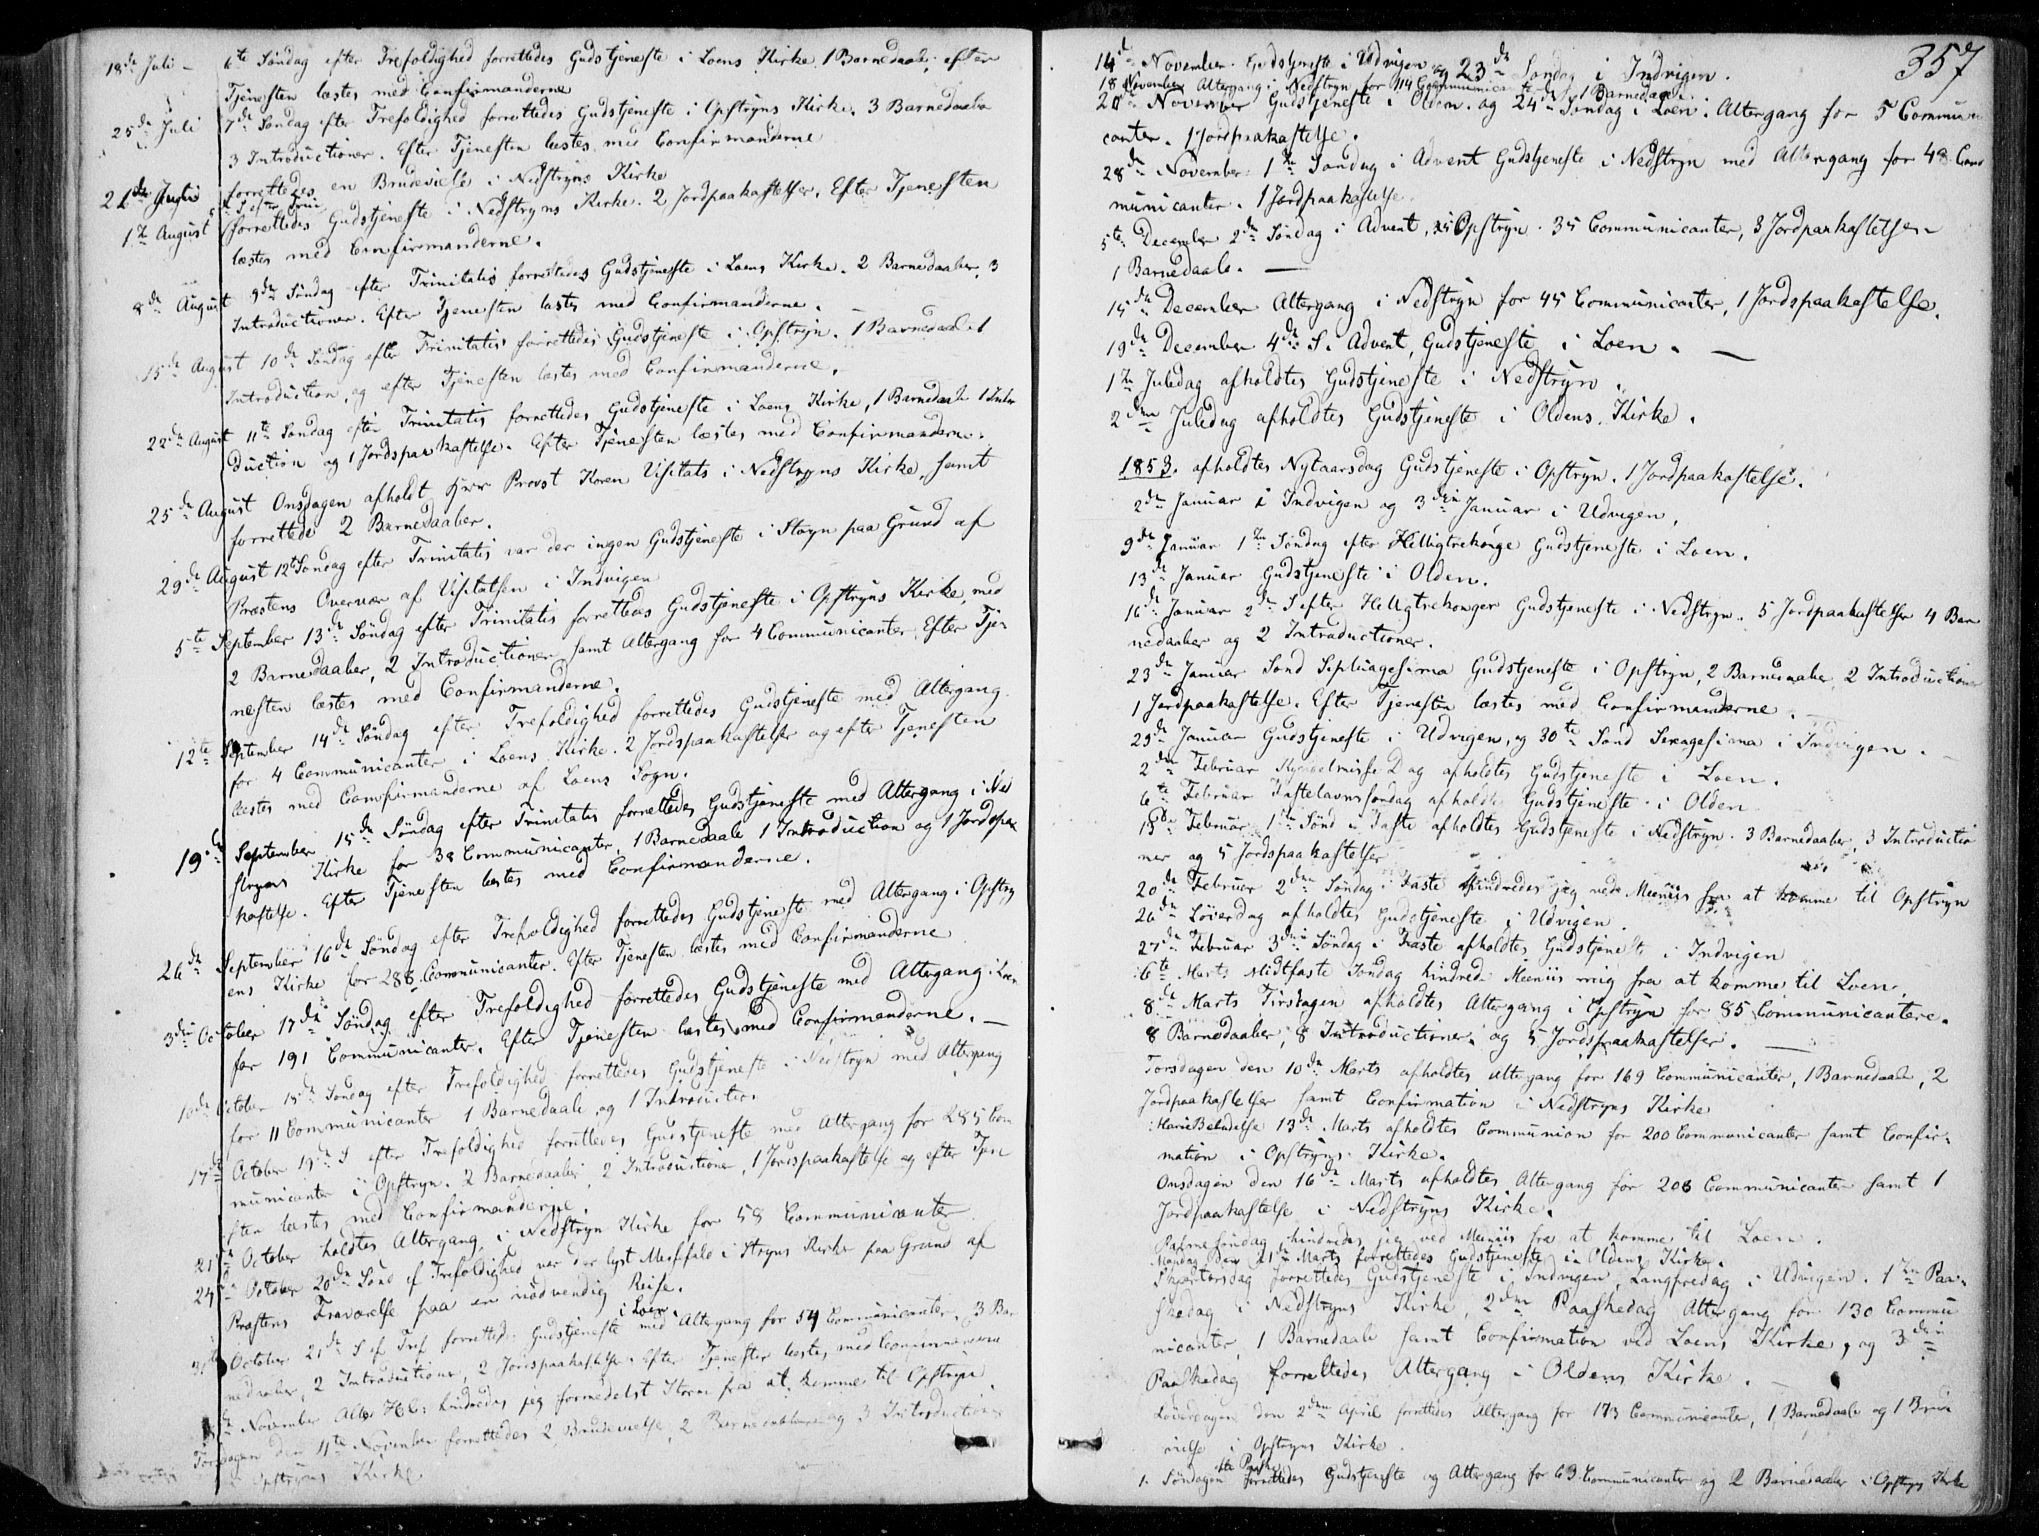 18de Juli – 6te Søndag efter Trefoldighed forrettedes Gudstjeneste i Loens Kirke. 1 Barnedaab; efter
Tjenesten læstes med Confirmanderne
25de Juli 7de Søndag efter Trefoldighed forrettedes Gudstjeneste i Opstryns Kirke. 3 Barnedaabe
3 Introductioner. Efter Tjenesten læstes med Confirmanderne
forrettedes en Brudevielse i Nedstryns Kirke
1te August forrettedes Gudstjeneste i Nedstryns Kirke. 2 Jordpaakastelser. Efter Tjenesten
læstes med Confirmanderne.
8de August 9de Søndag efter Trinitatis forrettedes Gudstjeneste i Loens Kirke. 2 Barnedaaber, 3
Introductioner. Efter Tjenesten læstes med Confirmanderne.
15de August 10de Søndag efter Trinitatis forrettedes Gudstjeneste i Opstryn. 1 Barnedaab 1
Introduction, og efter Tjenesten læstes med Confirmanderne.
22de August 11te Søndag efter Trinitatis forrettedes Gudstjeneste i Loens Kirke, 1 Barnedaab 1 Intro
duction og 1 Jordspaakastelse. Efter Tjenesten læstes med Confirmanderne.
25de August Onsdagen afholdt Herr Provst Koren Visitats i Nedstryns Kirke, samt
forrettede 2 Barnedaaber.
29de August 12te Søndag efter Trinitatis var der ingen Gudstjeneste i Stryn paa Grund af
Præstens Overvær af Visitatsen i Indvigen
5te September 13de Søndag efter Trinitatis forrettedes Gudstjeneste i Opstryns Kirke, med
2 Barnedaaber, 2 Introductioner samt Altergang for 4 Communicanter. Efter Tje-
nesten læstes med Confirmanderne.
12te September 14de Søndag efter Trefoldighed forrettedes Gudstjeneste med Altergang
for 4 Communicanter i Loens Kirke. 2 Jordspaakastelser og efter Tjenesten
læstes med Confirmanderne af Loens Sogn.
19de September 15de Søndag efter Trinitatis forrettedes Gudstjeneste med Altergang i Ned
stryns Kirke for 38 Communicanter, 1 Barnedaab 1 Introduction og 1 Jordspaa
kastelse. Efter Tjenesten læstes med Confirmanderne.
26de September 16de Søndag efter Trefoldighed forrettedes Gudstjeneste med Altergang i Opstry
ens Kirke for 288 Communicanter. Efter Tjenesten læstes med Confirmanderne
3die October 17de Søndag efter Trefoldighed forrettedes Gudstjeneste med Altergang i Loen
for 191 Communicanter. Efter Tjenesten læstes med Confirmanderne. –
10de October 18de Søndag efter Trefoldighed forrettedes Gudstjeneste i Nedstryn med Altergang
for 11 Communicanter 1 Barnedaab og 1 Introduction
17de October 19de S efter Trefoldighed forrettedes Gudstjeneste med Altergang for 285 Com
municanter i Opstryn. 2 Barnedaaber, 2 Introductioner, 1 Jordspaakastelse og efter Tjen
sten læstes med Confirmanderne.
21de October holdtes Altergang i Nedstryn Kirke for 58 Communicanter
24de October 20de Sønd ef Trefoldighed var der lyst Messefald i Stryns Kirke paa Grund af
Præstens Fraværelse paa en nødvendig Reise.
31te October 21de S ef Tref forrettedes Gudstjeneste i Loen med Altergang for 54 Communicanter, 3 Bar
nedaaber, 2 Introductioner, 2 Jordspaakastelse. Efter Tjenesten læstes med Confirmanderne
November Alle Hel: hindredes jeg formedelst Storm fra at komme til Opstryn
Torsdagen den 11te November forrettedes 2 Brudevielse, 2 Barnedaaber og 3 Introductioner
Opstryns Kirke
357
14de November Gudstjeneste i Udvigen og 23de Søndag i Indvigen.
18 November Altergang i Nedstryn for 114 Communicanter 1 Barnedaab
November Gudstjeneste i Olden og 24de Søndag i Loen: Altergang for 5 Commun
canter. 1 Jordpaakastelse.
28de November 1te Søndag i Advent Gudstjeneste i Nedstryn med Altergang for 48 Com
municanter. 1 Jordpaakastelse.
5te December 2de Søndag i Advent, i Opstryn. 35 Communicanter, 3 Jordpaakastelser
1 Barnedaab. —
15de December Altergang i Nedstryn for 45 Communicanter, 1 Jordspaakastelse.
19de December 4de S. Advent, Gudstjeneste i Loen. —
1te Juledag afholdtes Gudstjeneste i Nedstryn.
2den Juledag afholdtes Gudstjeneste i Oldens Kirke.
1853. afholdtes Nytaarsdag Gudstjeneste i Opstryn. 1 Jordpaakastelse.
2de Januar i Indvigen og 3die Januar i Udvigen.
9de Januar 1te Søndag efter Helligtrekonge Gudstjeneste i Loen.
13de Januar Gudstjeneste i Olden.
16de Januar 2de S efter Helligtrekonger Gudstjeneste i Nedstryn. 5 Jordpaakastelser 4 Bar
nedaaber og 2 Introductioner.
23de Januar Sønd Septuagesima Gudstjeneste i Opstryn, 2 Barnedaaber 2 Introductioner
1 Jordpaakastelse. Efter Tjenesten læstes med Confirmanderne. –
25de Januar Gudstjeneste i Udvigen, og 30te Sønd Sexagesima i Indvigen.
2den Februar Kyndelmisse Dag afholdtes Gudstjeneste i Loen.
6te Februar Fastelavnssøndag afholdtes Gudstjeneste i Olden
13de Februar 1te Sønd i Faste afholdtes Gudstjeneste i Nedstryn. 3 Barnedaaber, 3 Introductio
ner og 5 Jordspaakastelser
20de Februar 2den Søndag i Faste hindredes jeg ved Meeniis fra at komme til Opstryn
26de Løverdag afholdtes Gudstjeneste i Udvigen
27de Februar 3die Søndag i Faste afholdtes Gudstjeneste i Indvigen
6te Marts Midtfaste Søndag hindrede Meeniis mig fra at komme til Loen.
8de Marts Tirsdagen afholdtes Altergang i Opstryn for 85 Communicantere.
8 Barnedaaber, 8 Introductioner og 5 Jordspaakastelser. —
Torsdagen den 10de Marts afholdtes Altergang for 169 Communicanter, 1 Barnedaab, 2
Jordpaakastelser samt Confirmation i Nedstryns Kirke
Mariæ Bebudelse 13de Marts afholdtes Communion for 200 Communicanter samt Confir-
mation i Opstryns Kirke.
Onsdagen den 16de Marts afholdtes Altergang for 208 Communicanter samt 1
Jordpaakastelse i Nedstryns Kirke.
Palmesøndag hindredes jeg ved Meeniis fra at komme til Loen.
Mandag den 21de Marts forrettedes Gudstjeneste i Oldens Kirke.
Skjærtorsdag forrettedes Gudstjeneste i Indvigen, Langfredag i Udvigen. 1te Paa-
skedag i Nedstryns Kirke, 2den Paaskedag Altergang for 130 Commu
nicanter, 1 Barnedaab samt Confirmation ved Loens Kirke, og 3die
Paaskedag forrettedes Altergang i Oldens Kirke. –
Løverdagen den 2den April forrettedes Altergang for 173 Communicanter, 1 Barnedaab og 1 Brude
vielse i Opstryns Kirke.
1. Søndagen efter Paaske forrettedes Gudstjeneste og Altergang for 63 Communicanter og 2 Barnedaaber i Opstryns Kirke